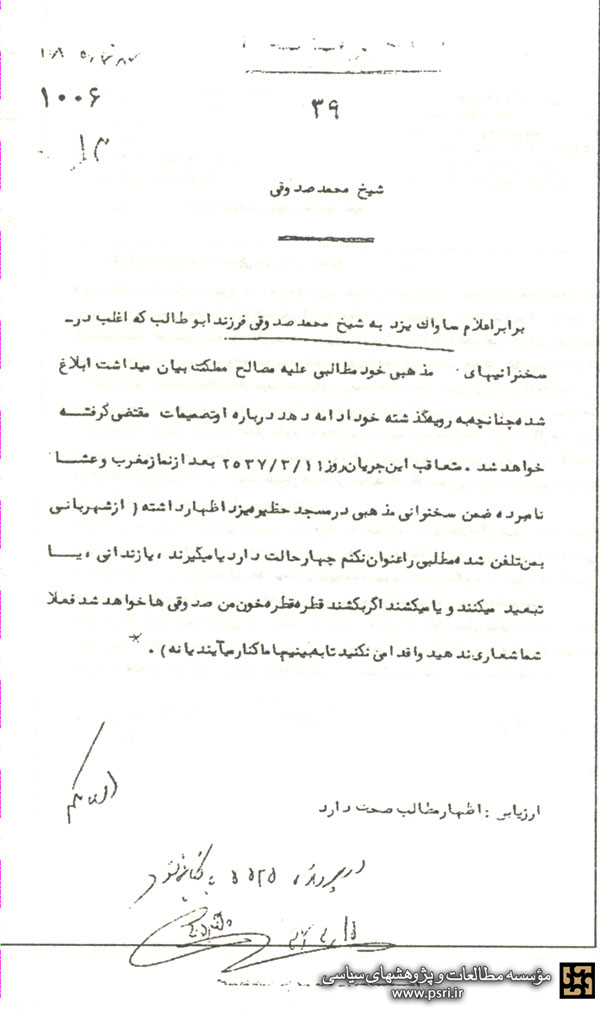 ۱۰۰۶
۳۹
شیخ محمد صدوقی
برابر اعلام ساواک یزد به شیخ محمد صدوقی فرزند ابوطالب که اغلب در-
سخنرانیهای مذهبی خود مطالبی علیه مصالح مملکت بیان میداشت ابلاغ
شده چنانچه به رویه گذشته خود ادامه دهد درباره او تصمیمات مقتضی گرفته
خواهد شد . متعاقب این جریان روز ۲۵۳۷/۳/۱۱ بعد از نماز مغرب و عشا
نامبرده ضمن سخنرانی مذهبی در مسجد حظیره یزد اظهار داشته ( از شهربانی
بمن تلفن شده مطلبی را عنوان نکنم چهار حالت دارد یا میگیرند ، یا زندانی ، یا
تبعید میکنند و یا میکشند اگر بکشند قطره قطره خون من صدوقی ها خواهد شد فعلا
شما شعاری ندهید و اقدامی نکنید تا به بینیم با ما کنار میآیند یا نه ) .
ارزیابی : اظهار مطالب صحت دارد
موسسه مطالعات و پژوهشهای سیاسی
www.psri.ir